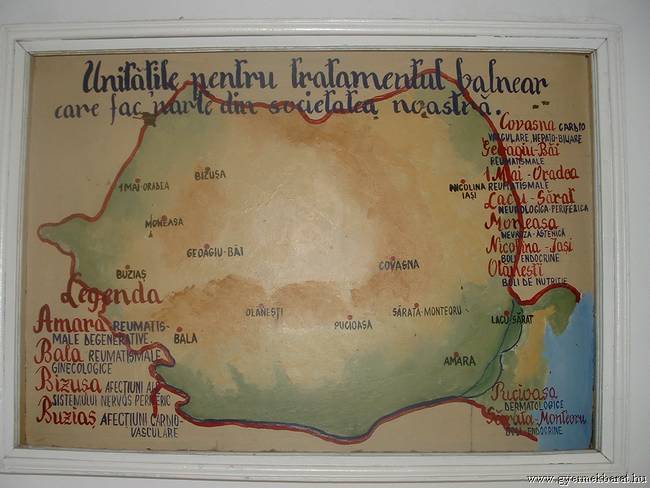 Unitățile pentru tratamentul balnear
care fac parte din societatea noastră.
Covasna CARDIO
VASCULARE, HEPATO-BILIARE
Geoagiu-Băi
REUMATISMALE
1 Mai-Oradea
REUMATISMALE
Lacu-Sărat
NEUROLOGICA-PERIFERICA
Moneasa
NEVROZA-ASTENICA
Nicolina-Iasi
BOLI ENDOCRINE
Olănesti
BOLI DE NUTRITIE
1 MAI-ORADEA
BIZUSA
NICOLINA
IASI
MONEASA
GEOAGIU-BĂI
COVASNA
BUZIAȘ
OLĂNEȘTI
PUCIOASA
SĂRATA-MONTEORU
LACU-SĂRAT
BALA
AMARA
Legenda
Amara REUMATIS-
MALE DEGENERATIVE
Bala REUMATISMALE
GINECOLOGICE
Bizusa AFECȚIUNI ALE
SISTEMULUI NERVOS PERIFERIC
Buziaș AFECȚIUNI CARDIO-
VASCULARE
Pucioasa
DERMATOLOGICE
Sărata-Monteoru
BOLI ENDOCRINE
www.gyermekbarat.hu